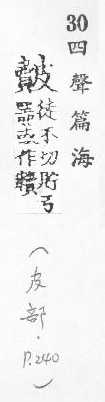 30四聲篇海
皾
徒木切貯弓
器或作
(皮部.P.240)